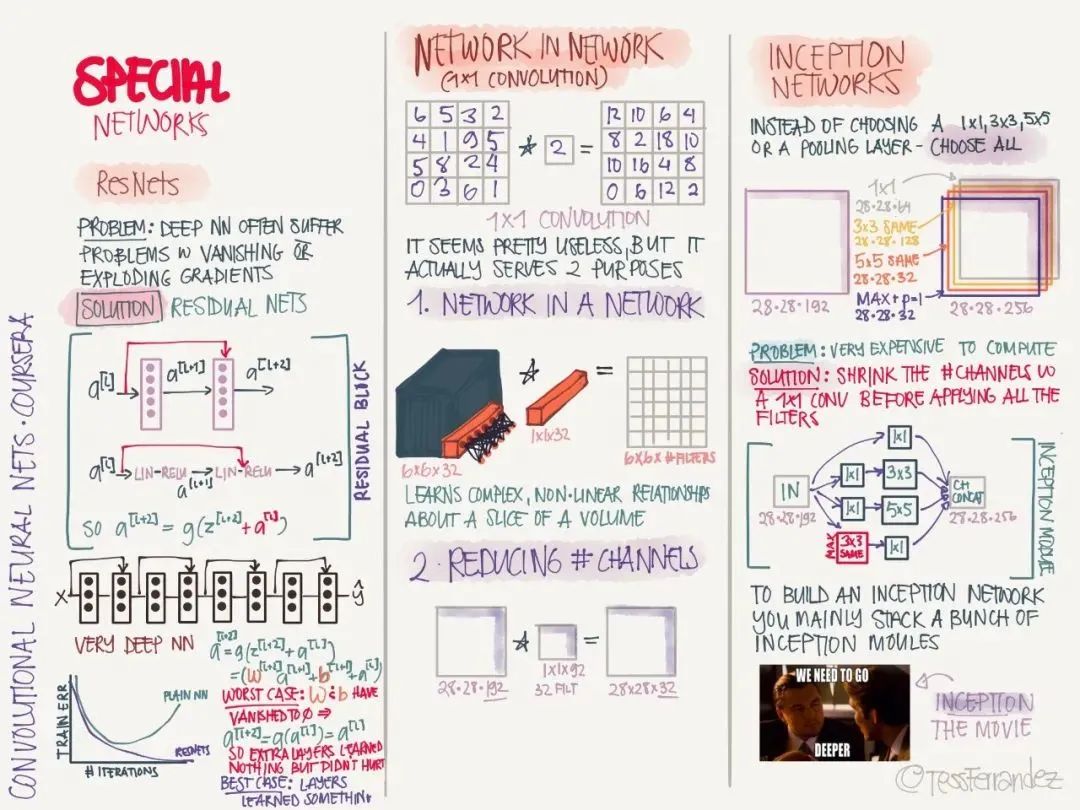 CONVOLUTIONAL NEURAL NETS · COURSERA
SPECIAL
NETWORKS
ResNets
PROBLEM: DEEP NN OFTEN SUFFER
PROBLEMS W VANISHING OR
EXPLODING GRADIENTS
SOLUTION RESIDUAL NETS
a[l] a[l+1] a[l+2]
a[l] LIN-RELU → LIN-RELU → a[l+2]
a[l+1]
so a[l+2] = g(z[l+2] + a[l])
RESIDUAL BLOCK
X ŷ
VERY DEEP NN
a[l+2] = g(z[l+2] + a[l])
= (W[l+2] a[l+1] + b[l+1] + a[l])
WORST CASE: W & b HAVE
VANISHED TO 0 ⇒
a[l+2] = g(a[l]) = a[l]
SO EXTRA LAYERS LEARNED
NOTHING BUT DIDN'T HURT
BEST CASE: LAYERS
LEARNED SOMETHIN
TRAIN ERR
PLAIN NN
RESNETS
# ITERATIONS
NETWORK IN NETWORK
(1x1 CONVOLUTION)
6 5 3 2
4 1 9 5
5 8 2 4
0 3 6 1
* 2 =
12 10 6 4
8 2 18 10
10 16 4 8
0 6 12 2
1x1 CONVOLUTION
IT SEEMS PRETTY USELESS, BUT IT
ACTUALLY SERVES 2 PURPOSES
1. NETWORK IN A NETWORK
* =
6x6x32
1x1x32
6x6x #FILTERS
LEARNS COMPLEX, NON-LINEAR RELATIONSHIPS
ABOUT A SLICE OF A VOLUME
2. REDUCING # CHANNELS
* =
28·28·192
1x1x92
32 FILT
28x28x32
INCEPTION
NETWORKS
INSTEAD OF CHOOSING A 1x1, 3x3, 5x5
OR A POOLING LAYER - CHOOSE ALL
1x1
28·28·64
3x3 SAME
28·28·128
5x5 SAME
28·28·32
MAX + p=1
28·28·32
28·28·192
28·28·256
PROBLEM: VERY EXPENSIVE TO COMPUTE
SOLUTION: SHRINK THE # CHANNELS W
A 1x1 CONV BEFORE APPLYING ALL THE
FILTERS
1x1
IN
28·28·192
1x1 3x3
1x1 5x5
MAX
3x3
SAME
1x1
CH
CONCAT
28·28·256
INCEPTION MODULE
TO BUILD AN INCEPTION NETWORK
YOU MAINLY STACK A BUNCH OF
INCEPTION MOULES
WE NEED TO GO
DEEPER
INCEPTION
THE MOVIE
©TessFerrandez